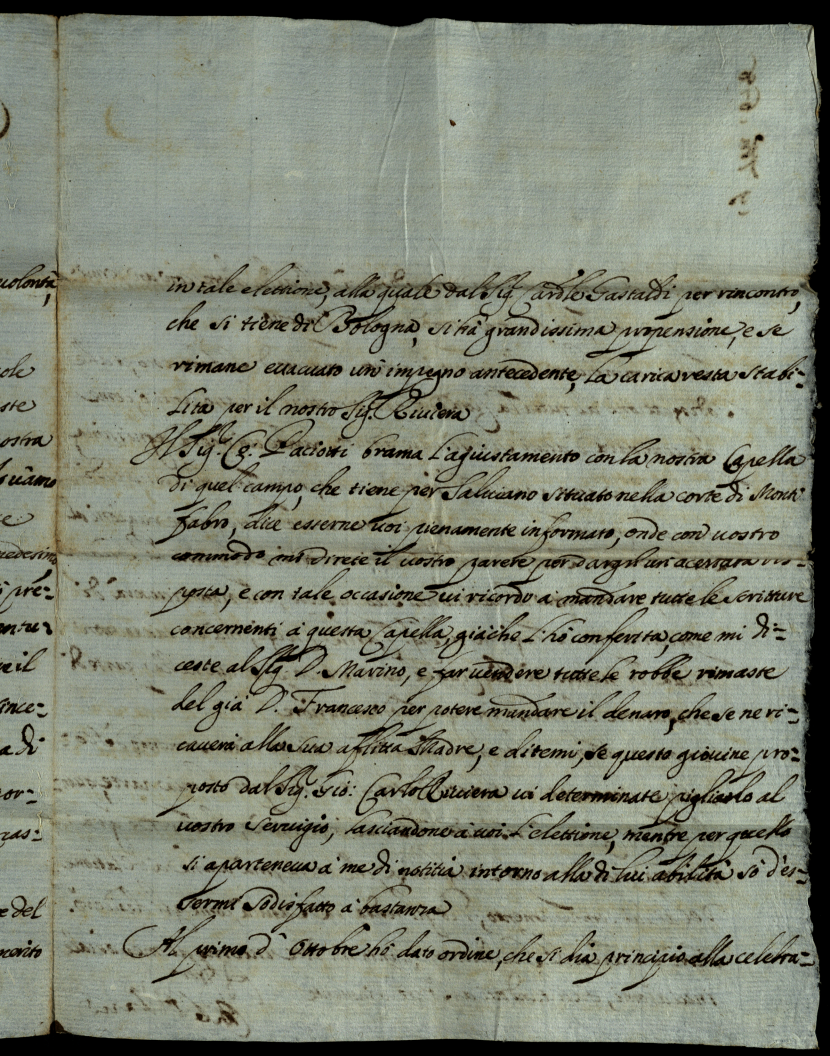 in tale elettione, alla quale dal Sig. Cardle Gastaldi per rincontro,
che si tiene di Bologna, si hà grandissima propensione, e se
rimane evacuato un' impegno antecedente, la carica resta stabi=
lita per il nostro Sig. Riviera
Il Sig. Paciotti brama l'agiustamento con la nostra Capella
di quel campo, che tiene per Saluciano situato nella corte di Monte
fabro, dice esserne voi pienamente informato, onde con vostro
commodo mi direte il vostro parere per dargli un' accertata ris=
posta, e con tale occasione vi ricordo à mandare tutte le scritture
concernenti à questa Capella, giàche l'hò conferita, come mi di=
ceste al Sig. D. Marino, e far vendere tutte le robbe rimaste
del già D. Francesco per potere mandare il denaro, che se ne ri=
caverà alla sua afflitta Madre, e ditemi, se questo giovine pro=
posto dal Sig. Gio: Carlo Riviera vi determinate pigliarlo al
vostro servigio, lasciandone à voi l'elettione, mentre per quello
si aparteneva à me di notitia intorno alla di lui abilità sò d'es=
sermi sodisfatto à bastanza
Al primo d' Ottobre hò dato ordine, che si dia principio alla celebra=
uolontà,
ole
ste
ostra
uamo
e
medesimo
pre=
ntu=
e il
ance=
a di
or=
ras=
e del
merito